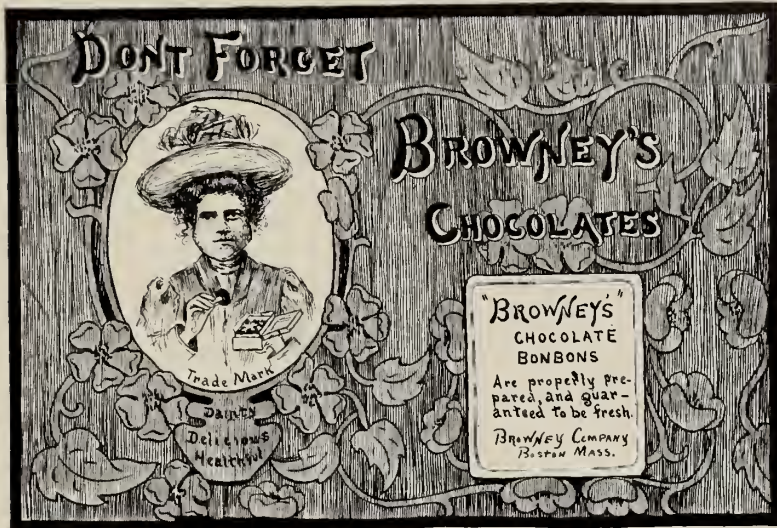 DONT FORGET
BROWNEY'S
CHOCOLATES
Trade Mark
Dainty
Delicious
Healthful
"BROWNEY'S"
CHOCOLATE
BONBONS
Are properly pre-
pared, and guar-
anteed to be fresh.
BROWNEY COMPANY
BOSTON MASS.